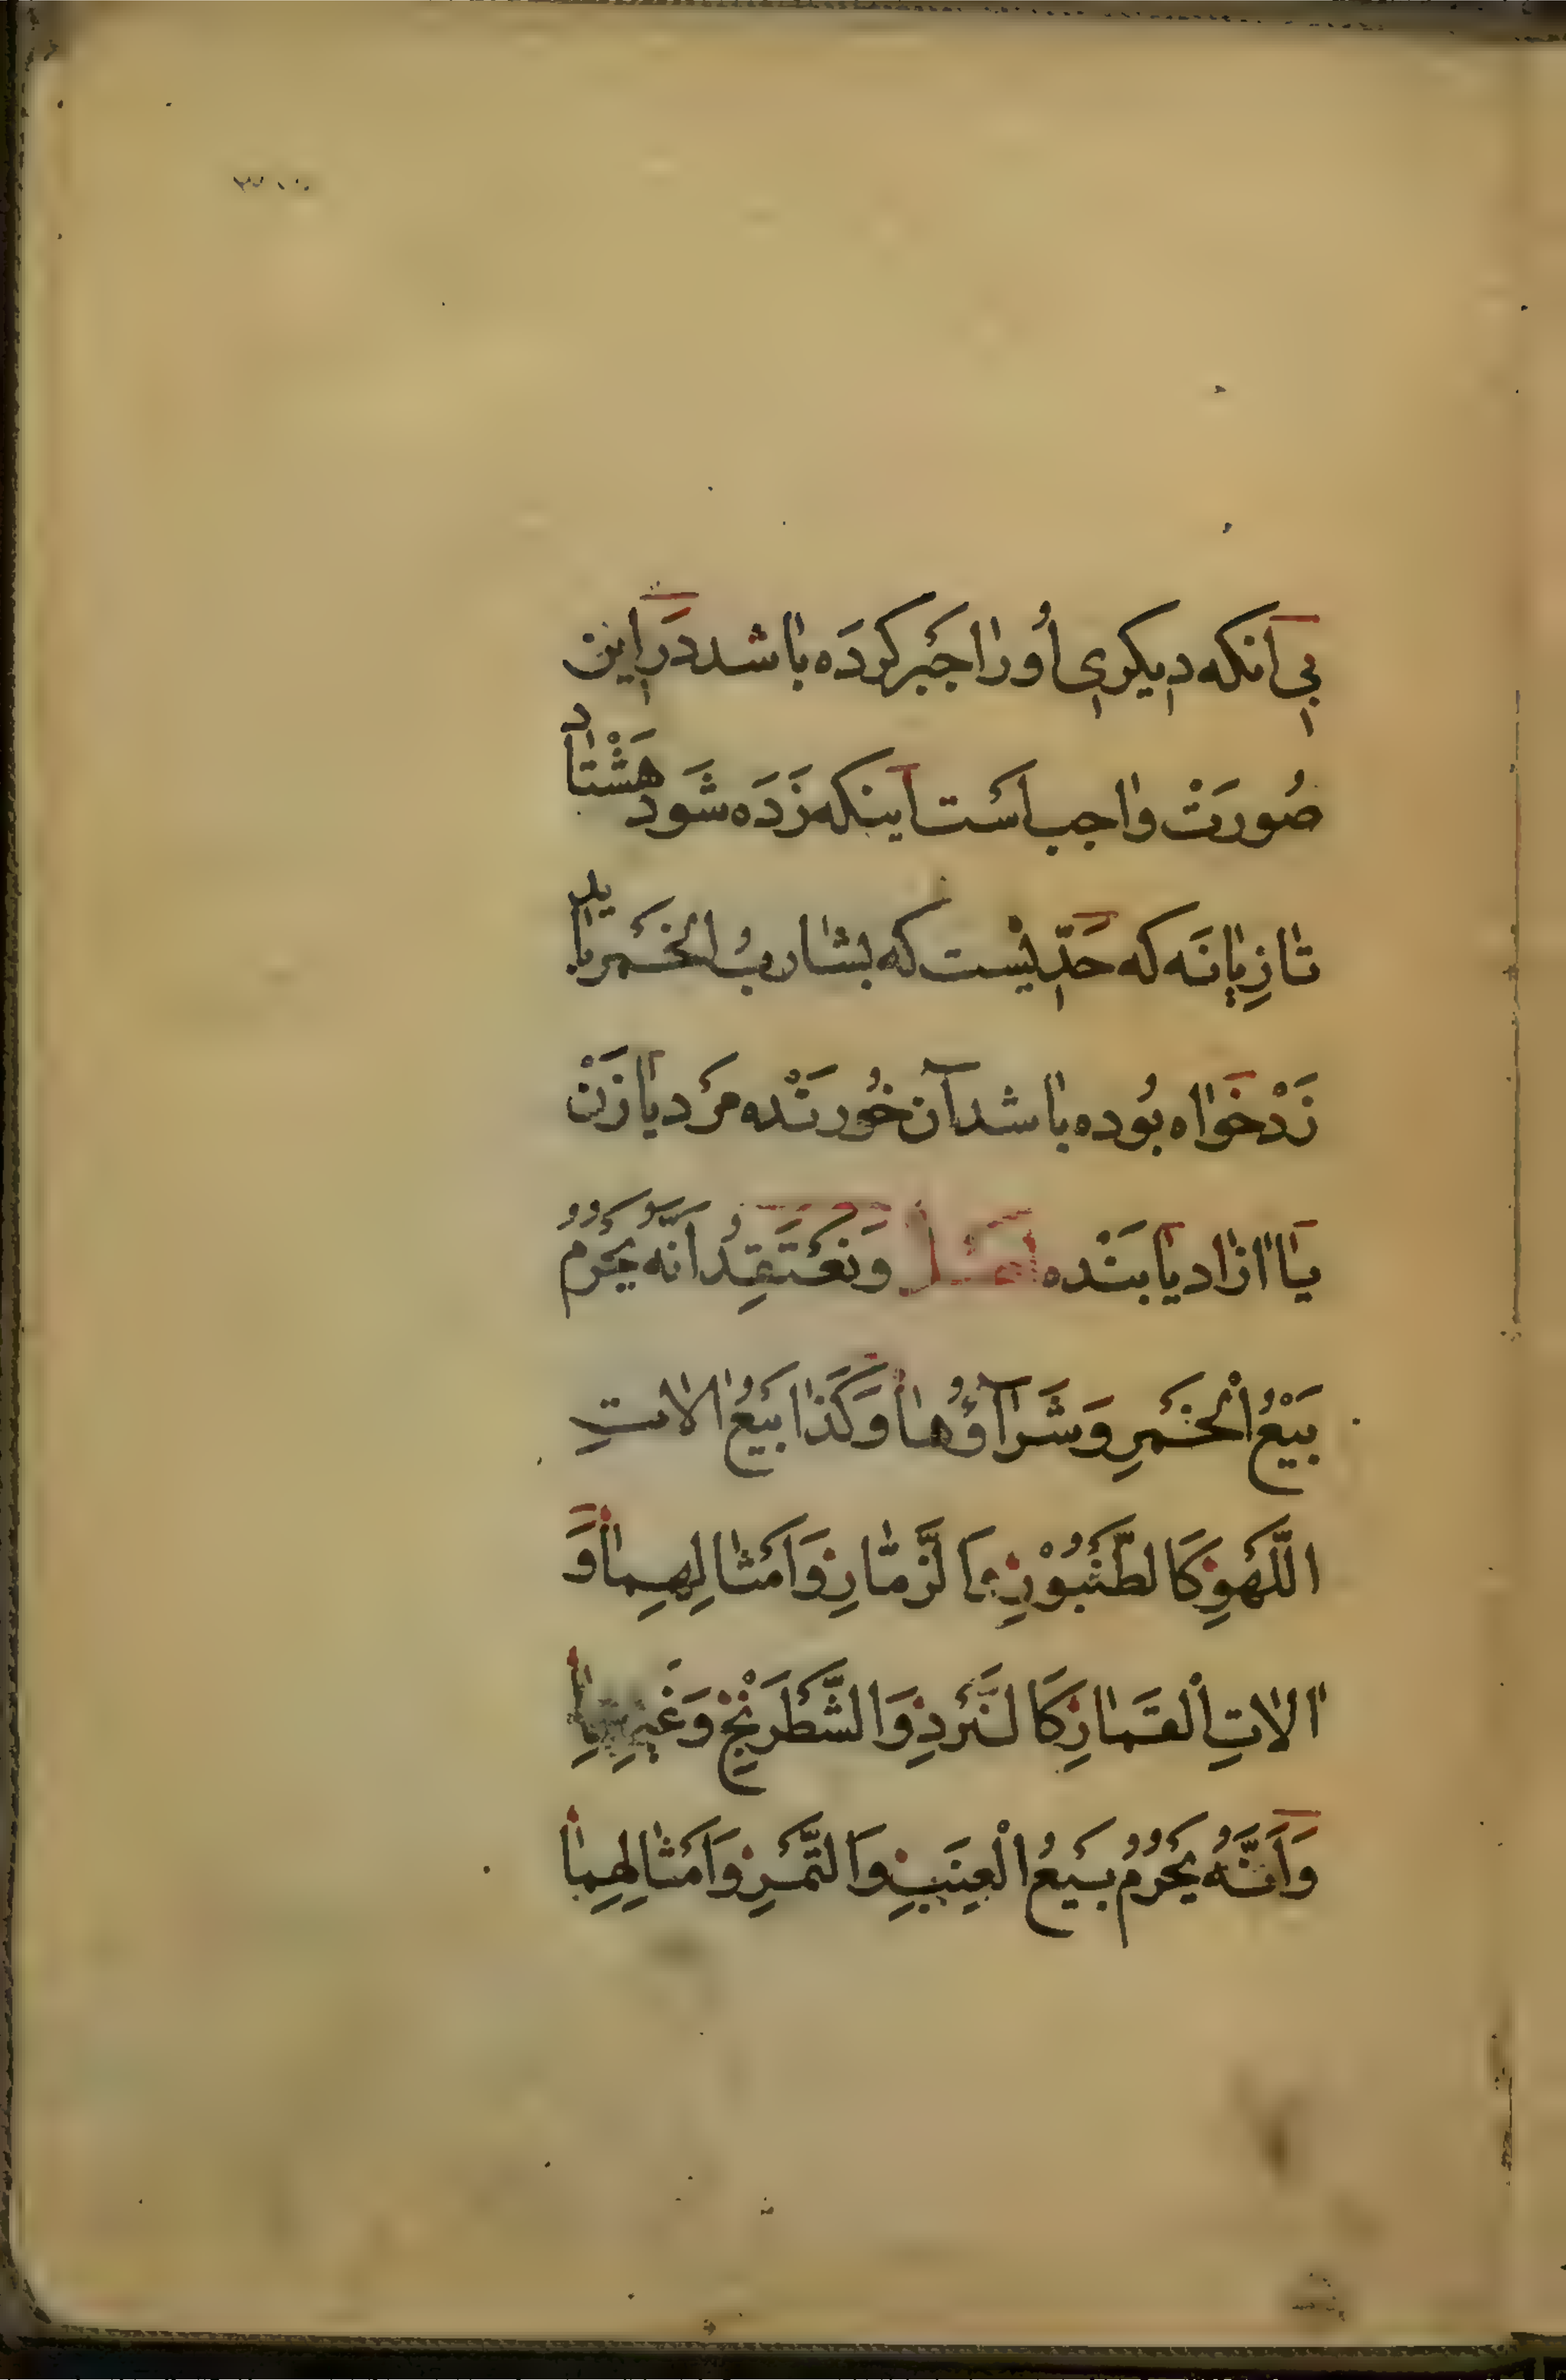 بِی آنکه دیکری أُو رٰا جَبر کردَه بٰاشد دَر این
صُورَتْ وٰاجب اَست اینکه زَدَه شَود هَشْتٰاد
تٰازِیٰانَه که حَدّیْست که بشٰاربُ الخَمر بٰاید
زَدْ خَوٰاه بُوده بٰاشد آن خُورَنْده مَرد یٰا زَنْ
یَا ازٰاد یَا بَنْده وَنَعْتَقِدُ اَنَّهُ یَحْرُمُ
بَیْعُ الْخَمرِ وَشَرآؤُهٰا وَکَذٰا بَیعُ اٰلاتِ
اللَّهْوِ کَالطَّنْبُوْرِ وَامْثٰالِهِمٰا وَ
اٰلاتِ القَمٰارِ کَالنَّردِ وَالشَّطْرَنْجِ وَغَیْرِهِمٰا
وَاَنَّهُ یَحْرُمُ بَیعُ الْعِنَبِ وَالتَّمْرِ وَاَمْثٰالِهِمٰا